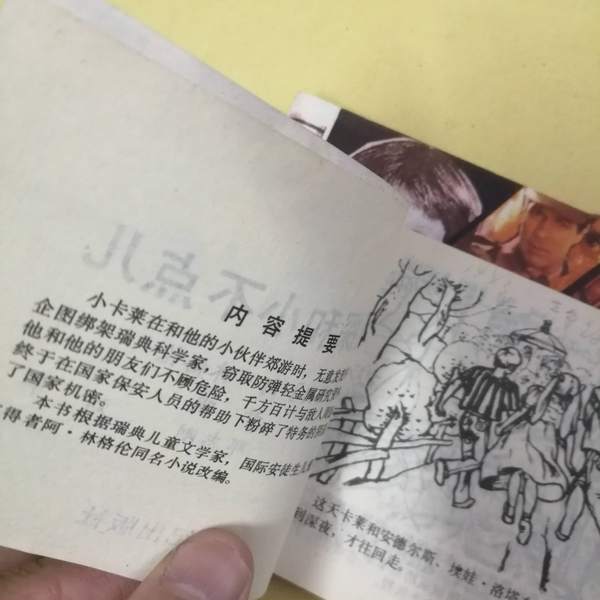 内容提要
小卡莱在和他的小伙伴郊游时，无意发
企图绑架瑞典科学家，窃取防弹轻金属研究
他和他的朋友们不顾危险，千方百计与敌人
终于在国家保安人员的帮助下粉碎了特务的
了国家机密。
本书根据瑞典儿童文学家，国际安徒生
得者阿·林格伦同名小说改编。
这天卡莱和安德尔斯、埃娃·洛塔
到深夜，才往回走。